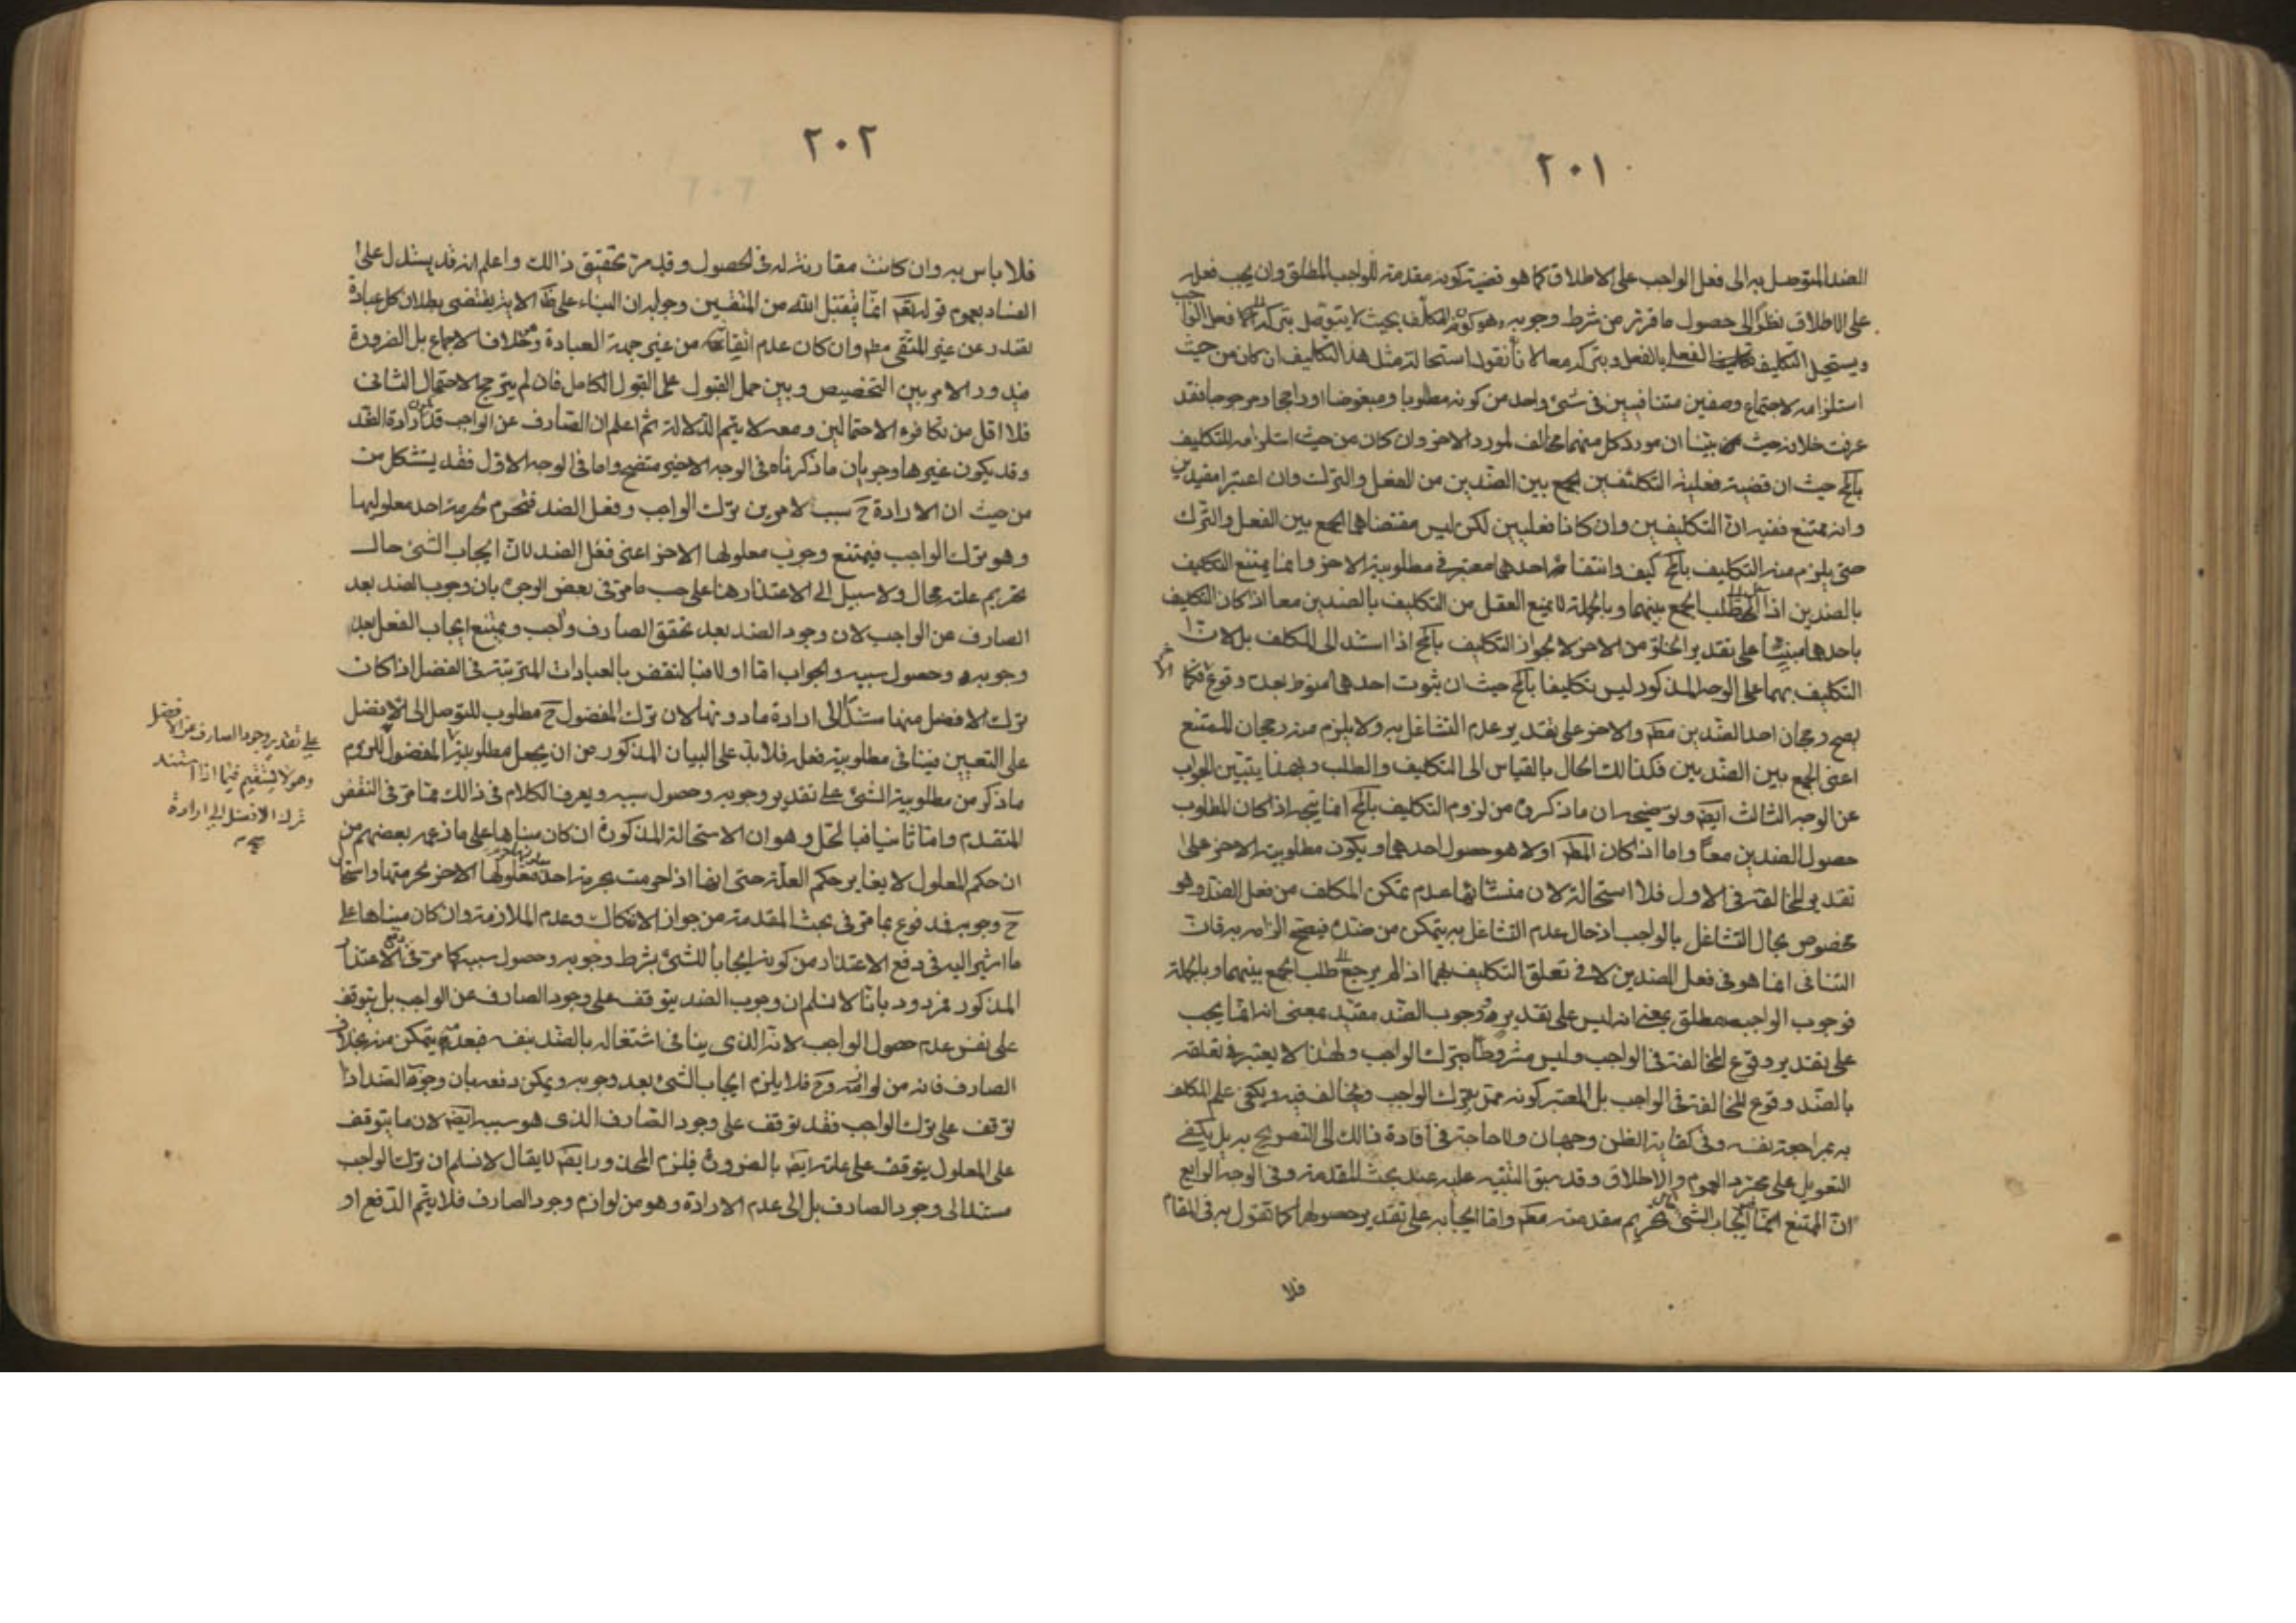 ٢٠١
الضد المتوصل به الى فعل الواجب على الاطلاق كما هو قضية كونه مقدمة للواجب المطلق وان يجب فعله
على الاطلاق نظرا الى حصول ما قرر من شرط وجوبه وهو كون المكلف بحيث لا يتوصل بتركه الى فعل الواجب
ويستحيل التكليف بالفعل وبتركه معا لانا نقول استحالة مثل هذا التكليف ان كان من حيث
استلزامه لاجتماع وصفين متنافيين في شئ واحد من كونه مطلوبا ومبغوضا او راجحا ومرجوحا فقد
عرفت خلافه حيث بينا ان مورد كل منهما مخالف لمورد الاخر وان كان من حيث استلزامه للتكليف
بالمح حيث ان قضية فعلية التكليفين الجمع بين الضدين من الفعل والترك وان اعتبرا مقيدين
وانه ممتنع ففيه ان التكليفين وان كانا فعليين لكن ليس مقتضاهما الجمع بين الفعل والترك
حتى يلزم منه التكليف بالمح كيف وانتفاء احدهما معتبر في مطلوبية الاخر وانما يمتنع التكليف
بالضدين اذا طلب الجمع بينهما وبالجملة لا يمنع العقل من التكليف بالضدين معا اذ كان التكليف
باحدهما مبنيا على تقدير الخلو من الاخر لا لجواز التكليف بالمح اذا استند الى المكلف بل لان
التكليف بهما على الوجه المذكور ليس تكليفا بالمح حيث ان ثبوت احدهما منوط بعدم وقوع الاخر فكما
يصح رجحان احد الضدين مطم والاخر على تقدير عدم التشاغل به ولا يلزم منه رجحان للممتنع
اعنى الجمع بين الضدين فكذلك الحال بالقياس الى التكليف والطلب وبهذا يتبين الجواب
عن الوجه الثالث ايضم وتوضيحه ان ما ذكروه من لزوم التكليف بالمح انما يتجه اذا كان المطلوب
حصول الضدين معا واما اذا كان المطم اولا هو حصول احدهما ويكون مطلوبية الاخر على
تقدير المخالفة في الاول فلا استحالة لان منشائها عدم تمكن المكلف من فعل الضد وهو
مخصوص بحال التشاغل بالواجب اذ حال عدم التشاغل به يتمكن من ضده فيصح الزامه به فان
التنافى انما هو في فعل الضدين لا في تعلق التكليف بهما اذا لم يرجع الى طلب الجمع بينهما وبالجملة
فوجوب الواجب مطلق بمعنى انه ليس على تقدير ووجوب الضد مقيد بمعنى انه انما يجب
على تقدير وقوع المخالفة في الواجب وليس مشروطا بترك الواجب ولهذا لا يعتبر في تعلقه
بالضد وقوع المخالفة في الواجب بل المعتبر كونه ممن يترك الواجب ويخالف فيه ويكفى علم المكلف
به بمراجعة نفسه وفي كفاية الظن وجهان ولا حاجة في افادة ذلك الى التصريح به بل يكفى
التعويل على مجرد العموم والاطلاق وقد سبق التنبيه عليه عند بحث المقدمة وفي الوجه الرابع
ان الممتنع انما ايجاب الشئ تحريم مقدمته مطم واما ايجابه على تقدير حصولها كما نقول به في المقام
فلا
٢٠٢
فلا باس به وان كانت مقارنة له في الحصول وقد مر تحقيق ذلك واعلم انه قد يستدل على
الفساد بعموم قوله تعم انما يتقبل الله من المتقين وجوابه ان البناء على ظم الاية يقتضى بطلان كل عبادة
تصدر عن غير المتقى مطم وان كان عدم اتقائه من غير جهة العبادة وهو خلاف الاجماع بل الضرورة
فيدور الامر بين التخصيص وبين حمل القبول على القبول الكامل فان لم يترجح الاحتمال الثانى
فلا اقل من تكافوء الاحتمالين ومعه لا يتم الدلالة ثم اعلم ان الصارف عن الواجب قد يكون ارادة الضد
وقد يكون غيرها وجريان ما ذكرناه في الوجه الاخير متضح واما في الوجه الاول فقد يستشكل من
من حيث ان الارادة ح سبب لامرين ترك الواجب وفعل الضد فتحرم لحرمة احد معلوليها
وهو ترك الواجب فيمتنع وجوب معلولها الاخر اعنى فعل الضد لان ايجاب الشئ حال
تحريم علته محال ولا سبيل الى الاعتذار هنا على حسب ما مر في بعض الوجوه بان وجوب الضد بعد
الصارف عن الواجب لان وجود الضد بعد تحقق الصارف واجب ويمتنع ايجاب الفعل بعد
وجوبه وحصول سببه والجواب اما اولا فبالنقض بالعبادات المترتبة في الفضل اذا كان
ترك الافضل منها مستندا الى ارادة ما دونها لان ترك المفضول ح مطلوب للتوصل الى الافضل
على التعيين فينافى مطلوبية فعله فلا بد على البيان المذكور من ان يجعل مطلوبية المفضول للزوم
ما ذكر من مطلوبية الشئ على تقدير وجوبه وحصول سببه ويعرف الكلام في ذلك مما مر في النقض
المتقدم واما ثانيا فبالحل وهو ان الاستحالة المذكورة ان كان مبناها على ما زعمه بعضهم من
ان حكم المعلول لا يغاير حكم العلة حتى انها اذا حرمت بحرمة احد معلوليها الاخر بحرمتها واستحال
ح وجوبه فمدفوع بما مر في بحث المقدمة من جواز الانفكاك وعدم الملازمة وان كان مبناها على
ما اشير اليه في دفع الاعتذار من كونه ايجابا للشئ بشرط وجوبه وحصول سببه كما مر في الاعتذار
المذكور فمردود بانا لا نسلم ان وجوب الضد يتوقف على وجود الصارف عن الواجب بل يتوقف
على نفس عدم حصول الواجب لانه الذى ينافى اشتغاله بالضد بنفسه فبعدمه يتمكن منه بخلاف
الصارف فانه من لوازمه وح فلا يلزم ايجاب الشئ بعد وجوبه ويمكن دفعه بان وجوب الضد اذا
توقف على ترك الواجب فقد توقف على وجود الصارف الذى هو سببه ايضم لان ما يتوقف
على المعلول يتوقف على علته ايضم بالضرورة فيلزم المحذور ايضم لا يقال لا نسلم ان ترك الواجب
مستند الى وجود الصارف بل الى عدم الارادة وهو من لوازم وجود الصارف فلا يتم الدفع او
على تقدير وجود الصارف عن الافضل
وهو لا يستقيم فيما اذا استند
ترك الافضل الى ارادة